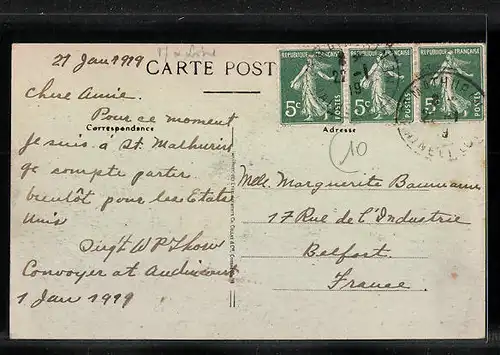 21 Jan 1919
CARTE POST
Chere Amie.
Pour ce moment
Correspondance
Je suis à St. Mathurin
je compte partir
bientôt pour les Etats
Unis
Sergt W P Show
Convoyer at Audincourt
1 Jan 1919
REPUBLIQUE FRANÇAISE
5c
POSTES
REPUBLIQUE FRANÇAISE
5c
POSTES
REPUBLIQUE FRANÇAISE
5c
Adresse
10
Mell. Marguerite Baumann
17 Rue de L'Industrie
Belfort.
France.